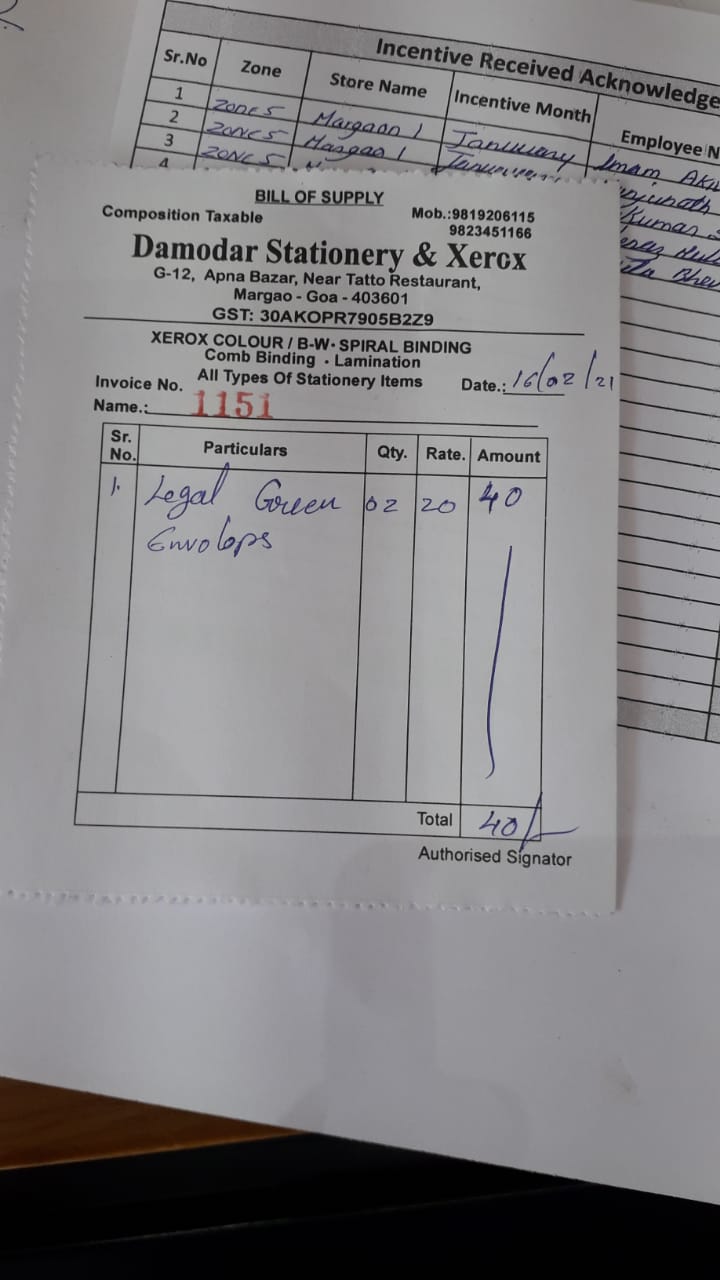 Incentive Received Acknowledge
Sr.No Zone Store Name Incentive Month Employee N
1 ZONE 5 Margaon 1 Januuary Imam
2 ZONE 5 Margao 1
3 ZONE 5
4
Kumar
BILL OF SUPPLY
Composition Taxable Mob.:9819206115
9823451166
Damodar Stationery & Xerox
G-12, Apna Bazar, Near Tatto Restaurant,
Margao - Goa - 403601
GST: 30AKOPR7905B2Z9
XEROX COLOUR / B-W- SPIRAL BINDING
Comb Binding - Lamination
Invoice No. All Types Of Stationery Items Date.: 16/02/21
Name.: 1151
Sr. No. Particulars Qty. Rate. Amount
1. Legal Green 02 20 40
Envolops
Total 40/-
Authorised Signator